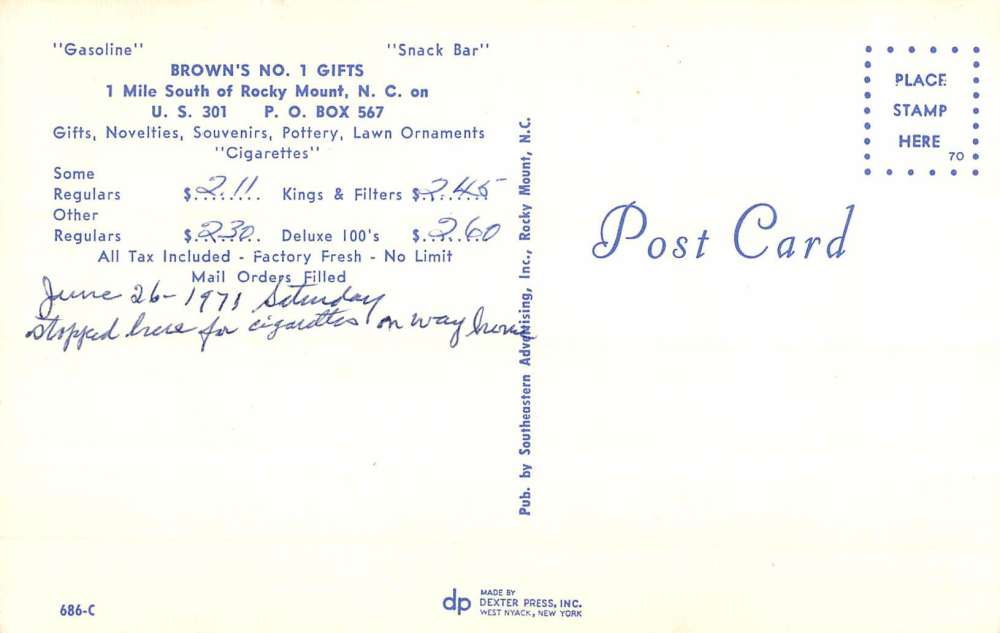 "Gasoline" "Snack Bar"
BROWN'S NO. 1 GIFTS
1 Mile South of Rocky Mount, N. C. on
U. S. 301 P. O. BOX 567
Gifts, Novelties, Souvenirs, Pottery, Lawn Ornaments
"Cigarettes"
Some
Regulars $ 2.11 Kings & Filters $ 2.45
Other
Regulars $ 2.30 Deluxe 100's $ 2.60
All Tax Included - Factory Fresh - No Limit
Mail Orders Filled
June 26-1971 Saturday
stopped here for cigarettes on way home
Pub. by Southeastern Advertising, Inc., Rocky Mount, N.C.
PLACE
STAMP
HERE
70
Post Card
686-C
dp MADE BY
DEXTER PRESS, INC.
WEST NYACK, NEW YORK